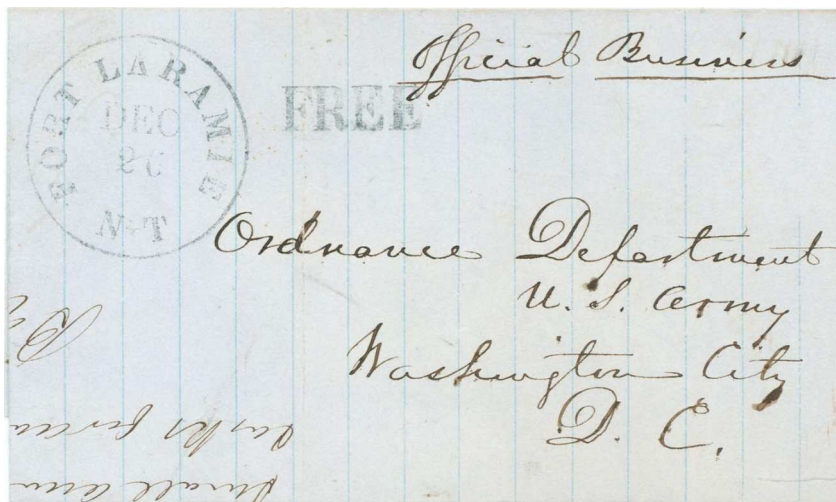 Official Business
FORT LARAMIE
DEC
26
N.T
FREE
Ordnance Department
U. S. Army
Washington City
D. C.